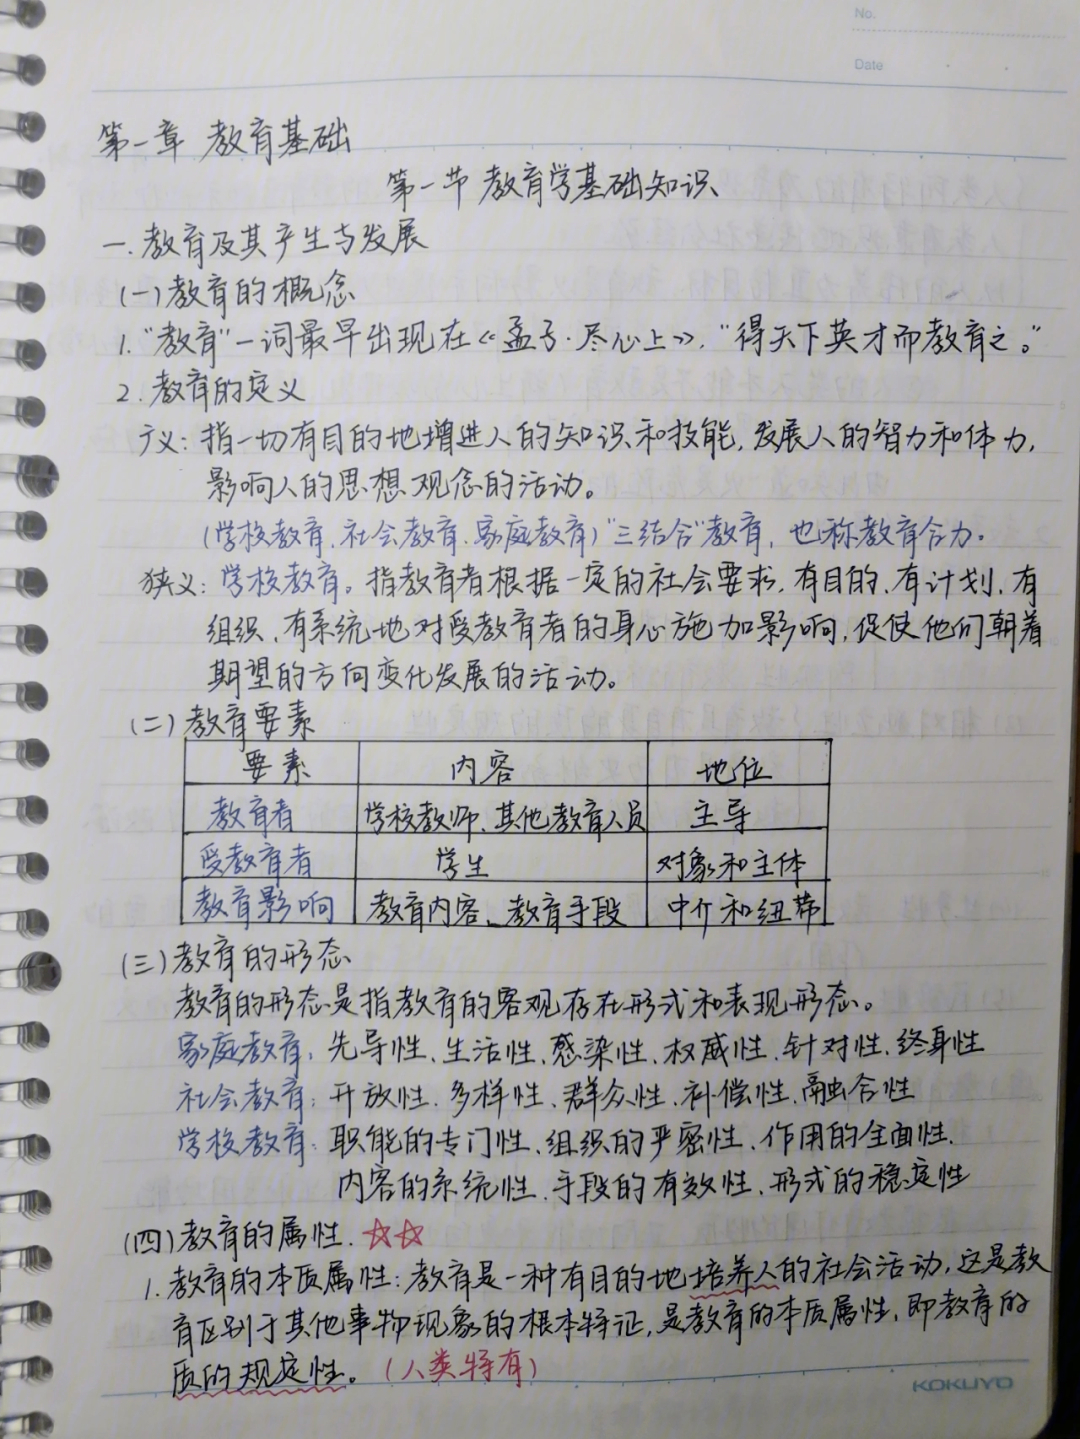 No.
Date
第一章 教育基础
第一节 教育学基础知识
一.教育及其产生与发展
(一)教育的概念
1."教育"一词最早出现在《孟子·尽心上》,"得天下英才而教育之。"
2.教育的定义
广义:指一切有目的地增进人的知识和技能,发展人的智力和体力,
影响人的思想观念的活动。
(学校教育、社会教育、家庭教育)"三结合"教育,也称教育合力。
狭义:学校教育。指教育者根据一定的社会要求,有目的、有计划、有
组织、有系统地对受教育者的身心施加影响,促使他们朝着
期望的方向变化发展的活动。
(二)教育要素
要素 内容 地位
教育者 学校教师、其他教育人员 主导
受教育者 学生 对象和主体
教育影响 教育内容、教育手段 中介和纽带
(三)教育的形态
教育的形态是指教育的客观存在形式和表现形态。
家庭教育:先导性、生活性、感染性、权威性、针对性、终身性
社会教育:开放性、多样性、群众性、补偿性、融合性
学校教育:职能的专门性、组织的严密性、作用的全面性、
内容的系统性、手段的有效性、形式的稳定性
(四)教育的属性.☆☆
1.教育的本质属性:教育是一种有目的地培养人的社会活动,这是教
育区别于其他事物现象的根本特征,是教育的本质属性,即教育的
质的规定性。(人类特有)
KOKUYO